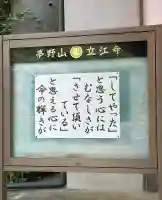 亭野山 立江寺
「してやった」
と思う心には
むなしさが
「させて頂い
ている」
と思える心に
命の輝きが